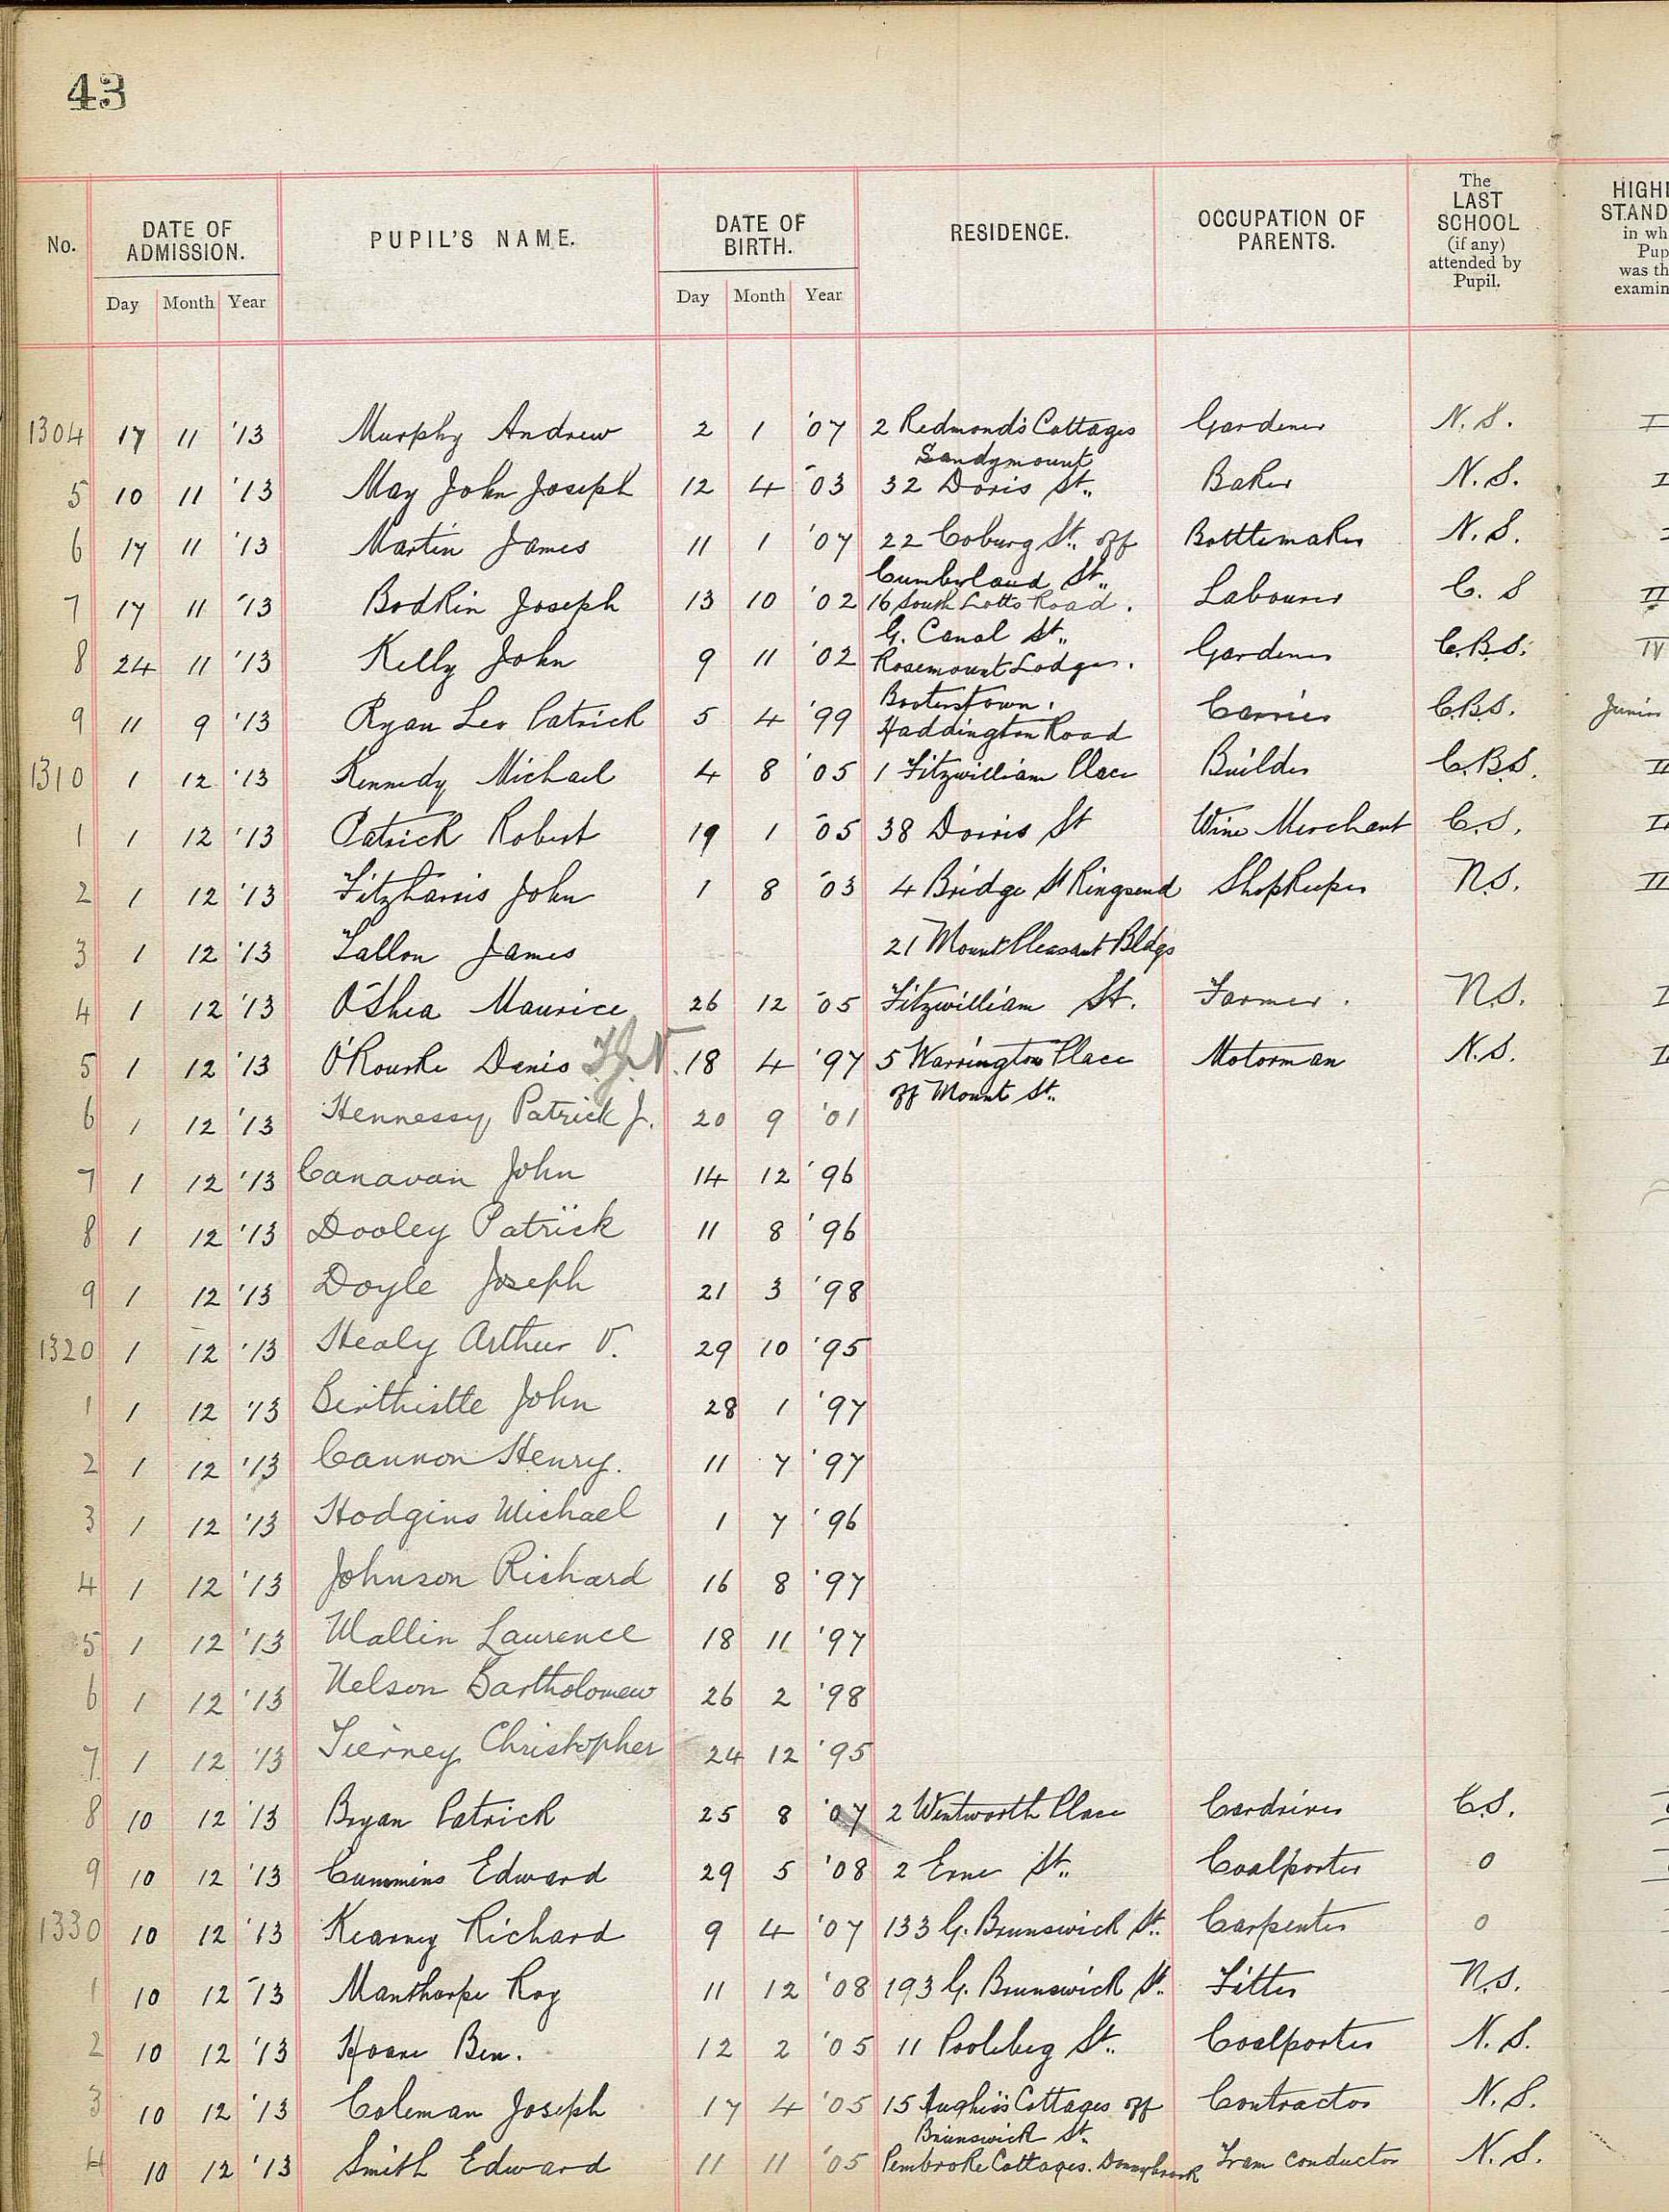 43
No. DATE OF ADMISSION. PUPIL'S NAME. DATE OF BIRTH. RESIDENCE. OCCUPATION OF PARENTS. The LAST SCHOOL (if any) attended by Pupil. HIGH STAND in wh Pup was th examin
Day Month Year Day Month Year
1304 17 11 '13 Murphy Andrew 2 1 '07 2 Redmond's Cottages Gardener N.S. I
Sandymount
5 10 11 '13 May John Joseph 12 4 '03 32 Doris St. Baker N.S. I
6 17 11 '13 Martin James 11 1 '07 22 Coburg St. off Bottlemaker N.S.
Cumberland St.
7 17 11 '13 Bodkin Joseph 13 10 '02 16 South Lotts Road. Labourer C.S II
G. Canal St.
8 24 11 '13 Kelly John 9 11 '02 Rosemount Lodge. Gardener C.B.S. IV
Booterstown.
9 11 9 '13 Ryan Leo Patrick 5 4 '99 Haddington Road Carrier C.B.S. Junior
1310 1 12 '13 Kennedy Michael 4 8 '05 1 Fitzwilliam Place Builder C.B.S. II
1 1 12 '13 Patrick Robert 19 1 '05 38 Dorris St Wine Merchant C.S. I
2 1 12 '13 Fitzharris John 1 8 '03 4 Bridge St Ringsend Shopkeeper N.S. II
3 1 12 '13 Tallon James 21 Mount Pleasant Bldgs
4 1 12 '13 O'Shea Maurice 26 12 '05 Fitzwilliam St. Farmer. N.S. I
5 1 12 '13 O'Rourke Denis 18 4 '97 5 Warrington Place Motorman N.S. I
off Mount St.
6 1 12 '13 Hennessy Patrick J. 20 9 '01
7 1 12 '13 Canavan John 14 12 '96
8 1 12 '13 Dooley Patrick 11 8 '96
9 1 12 '13 Doyle Joseph 21 3 '98
1320 1 12 '13 Healy Arthur V. 29 10 '95
1 1 12 '13 Birthistle John 28 1 '97
2 1 12 '13 Cannon Henry. 11 7 '97
3 1 12 '13 Hodgins Michael 1 7 '96
4 1 12 '13 Johnson Richard 16 8 '97
5 1 12 '13 Mallin Laurence 18 11 '97
6 1 12 '13 Nelson Bartholomew 26 2 '98
7 1 12 '13 Tierney Christopher 24 12 '95
8 10 12 '13 Bryan Patrick 25 8 '07 2 Wentworth Place Cardriver C.S.
9 10 12 '13 Cummins Edward 29 5 '08 2 Erne St. Coalporter 0
1330 10 12 '13 Kearney Richard 9 4 '07 133 G. Brunswick St. Carpenter 0
1 10 12 '13 Manthorpe Roy 11 12 '08 193 G. Brunswick St. Fitter N.S.
2 10 12 '13 Hoare Ben. 12 2 '05 11 Poolbeg St. Coalporter N.S.
3 10 12 '13 Coleman Joseph 17 4 '05 15 Cottages off Contractor N.S.
Brunswick St.
4 10 12 '13 Smith Edward 11 11 '05 Pembroke Cottages. Donnybrook Tram conductor N.S.